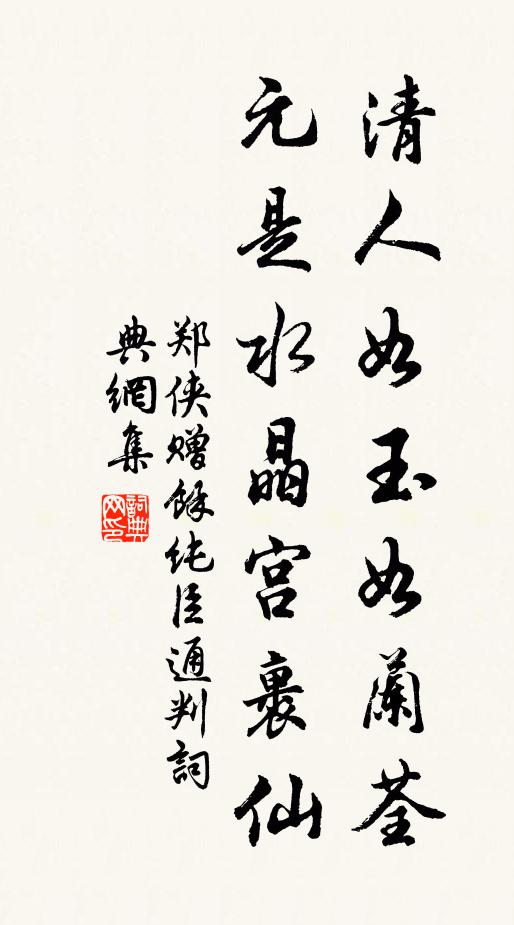 清人如玉如蘭荃
元是水晶宫裏仙
郑侠赠餘纯臣通判詞
典網集
詞典
网印